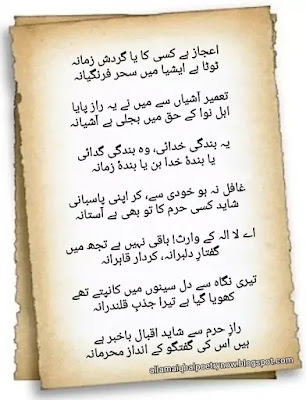 اعجاز ہے کسی کا یا گردش زمانہ
ٹوٹا ہے ایشیا میں سحر فرنگیانہ
تعمیر آشیاں سے میں نے یہ راز پایا
اہل نوا کے حق میں بجلی ہے آشیانہ
یہ بندگی خدائی، وہ بندگی گدائی
یا بندۂ خدا بن یا بندۂ زمانہ
غافل نہ ہو خودی سے، کر اپنی پاسبانی
شاید کسی حرم کا تو بھی ہے آستانہ
اے لا الہ کے وارث! باقی نہیں ہے تجھ میں
گفتار دلبرانہ، کردار قاہرانہ
تیری نگاہ سے دل سینوں میں کانپتے تھے
کھویا گیا ہے تیرا جذب قلندرانہ
راز حرم سے شاید اقبال باخبر ہے
ہیں اس کی گفتگو کے انداز محرمانہ
allamaiqbalpoetrynow.blogspot.com